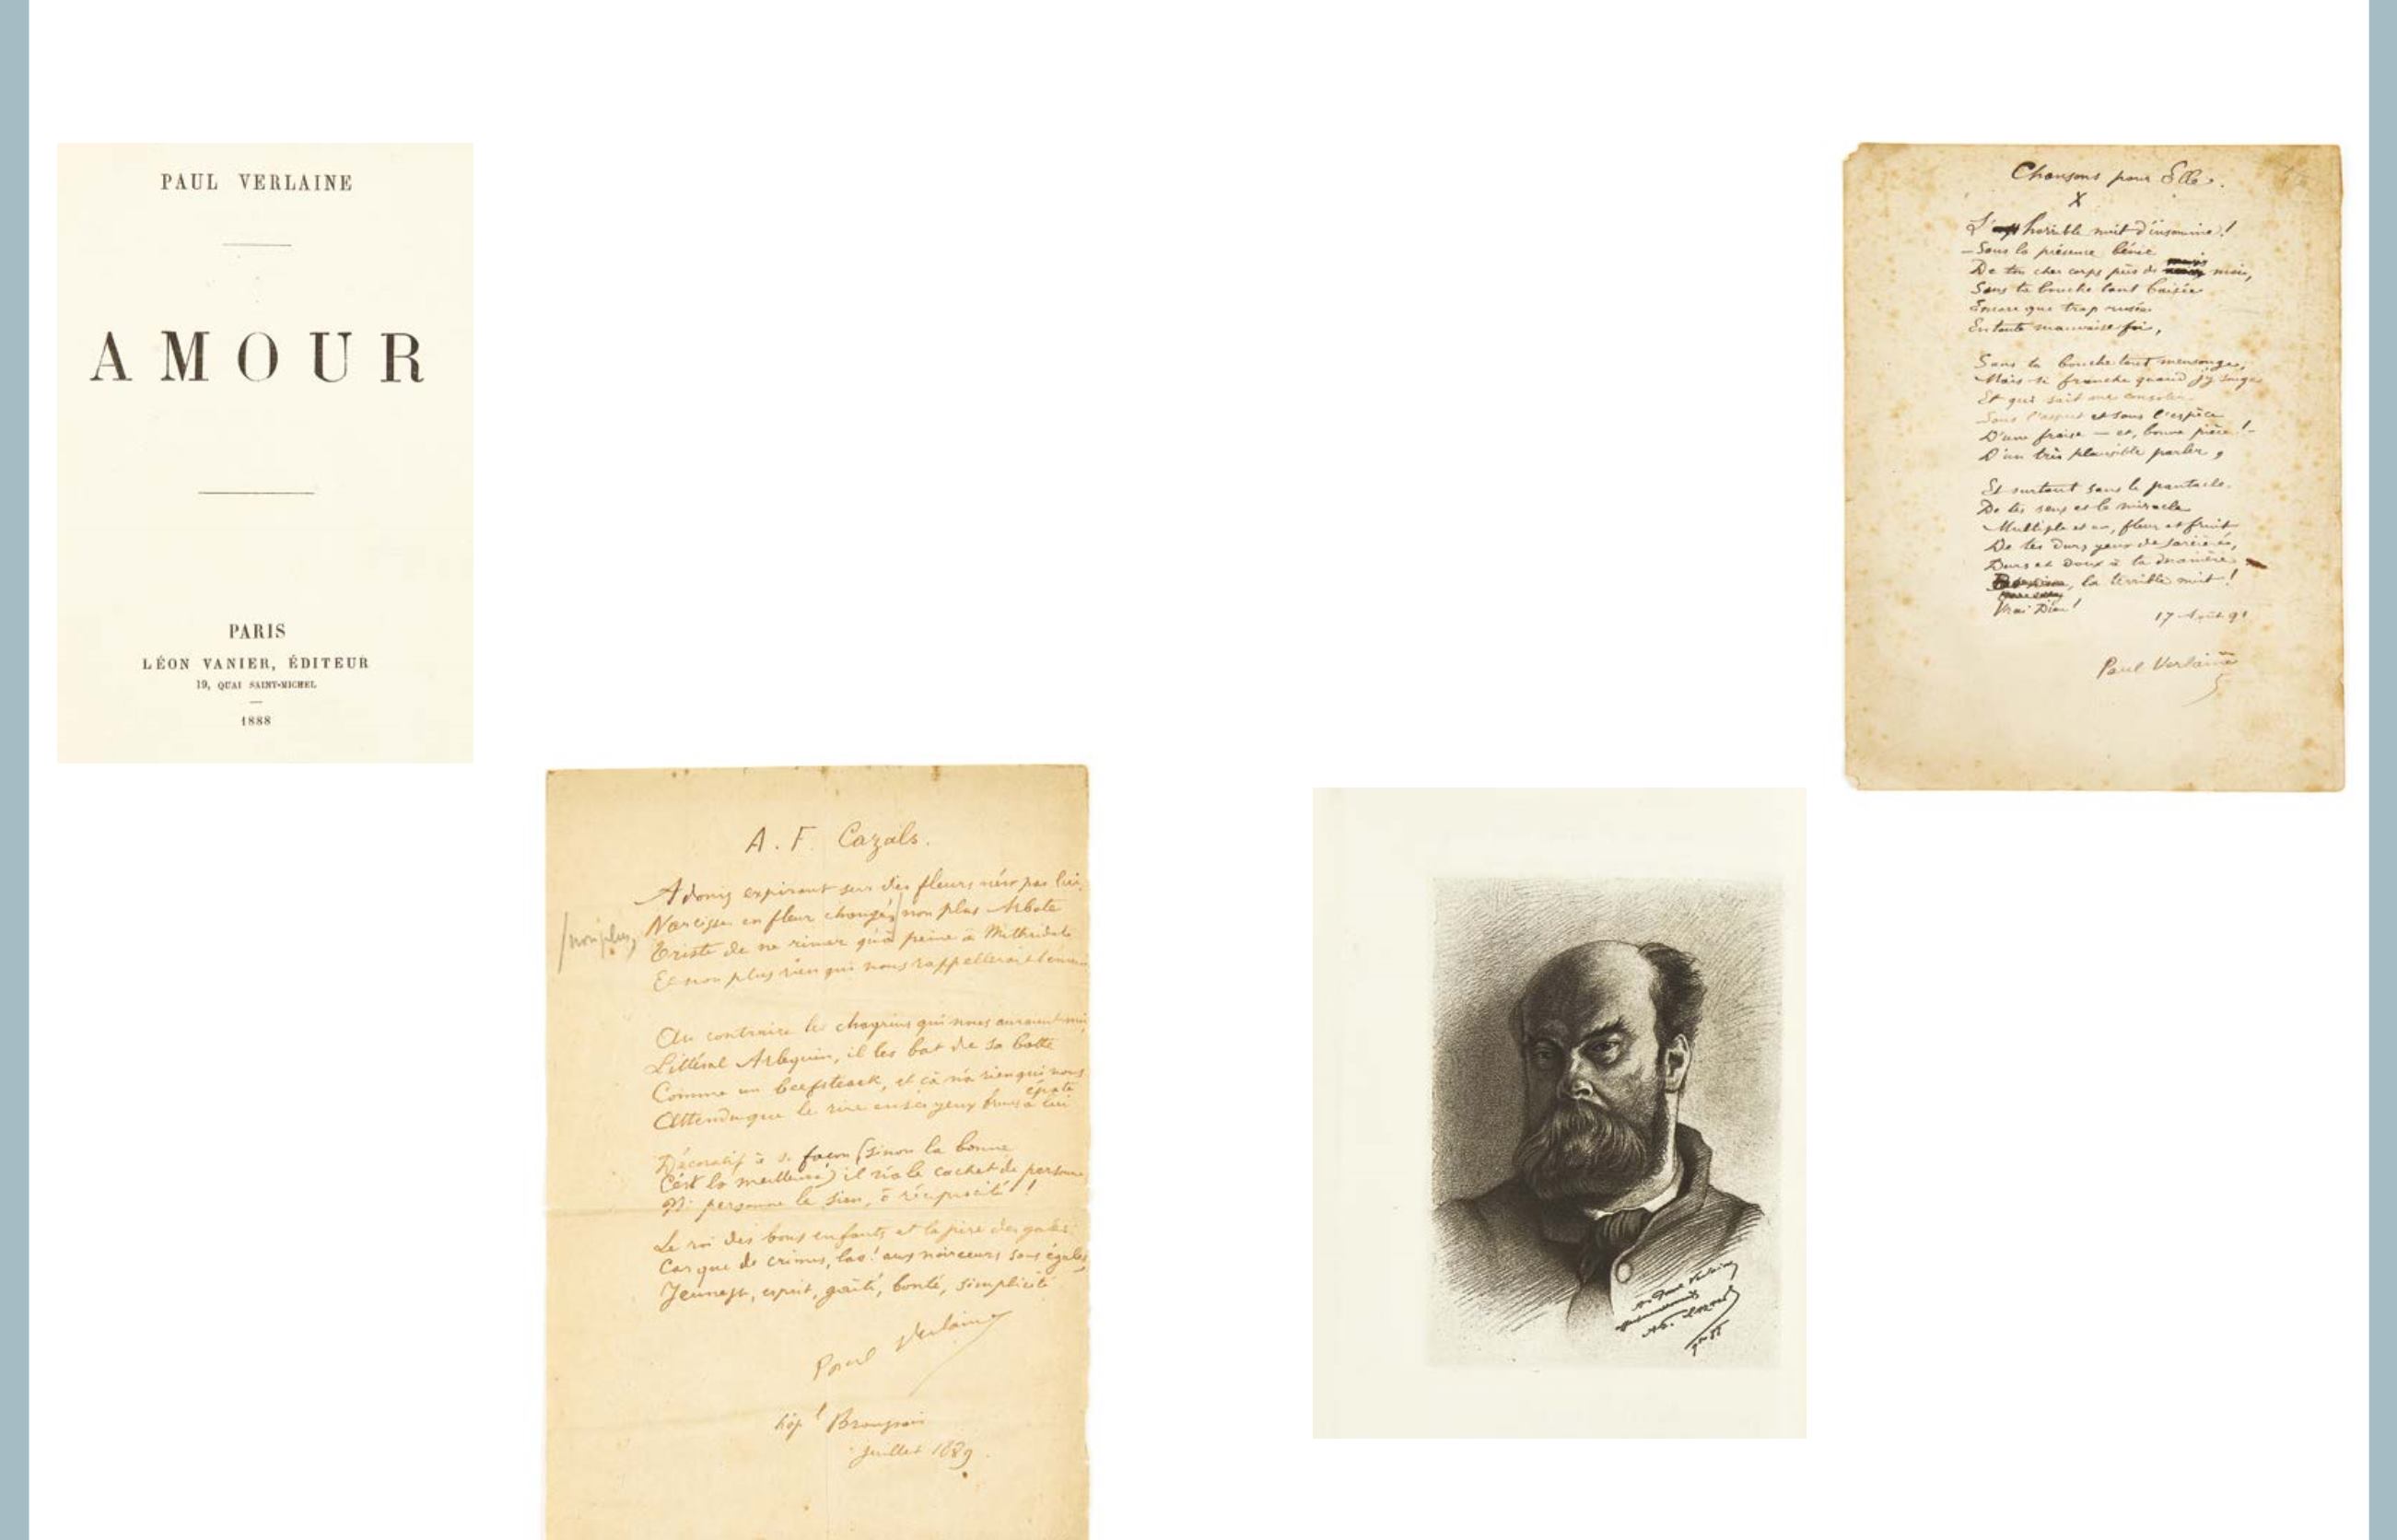 PAUL VERLAINE
AMOUR
PARIS
LÉON VANIER, ÉDITEUR
19, QUAI SAINT-MICHEL
1888
A. F. Cazals.
Adonis expirant sur des fleurs, n'est pas lui,
Narcisse en fleur changé, non plus
/non plus,
Triste de ne rimer qu'à peine à Mithridate
Et non plus rien qui nous rappellerait
Au contraire les chagrins qui nous auraient
Littéral Arlequin, il les bat de sa batte
Comme un beefsteack, et ça n'a rien qui nous
épate
Attendu que le rire en ses yeux à lui
Décoratif à sa façon (sinon la bonne
C'est la meilleure) il n'a le cachet de personne
Ni personne le sien, ô réciprocité!
Le roi des bons enfants et la pire des gales
Car que de crimes, las! aux noirceurs sans égales
Jeunesse, esprit, gaîté, bonté, simplicité
Paul Verlaine
hôpl Broussais
Juillet 1889.
Chansons pour Elle.
X
L'horrible nuit d'insomnie!
– Sans la présence bénie
De ton cher corps près de moi,
Sans ta bouche tant baisée
Encore que trop rusée
En toute mauvaise foi,
Sans ta bouche tout mensonge,
Mais si franche quand j'y songe
Et qui sait me consoler
Sous l'aspect et sous l'espèce
D'une fraise – et, bonne pièce! –
D'un très plausible parler,
Et surtout sans le pentacle
De tes sens et le miracle
Multiple et un, fleur et fruit,
De tes durs yeux de sorcière,
Durs et doux à ta manière
la terrible nuit!
Vrai Dieu!
17 Août 91
Paul Verlaine